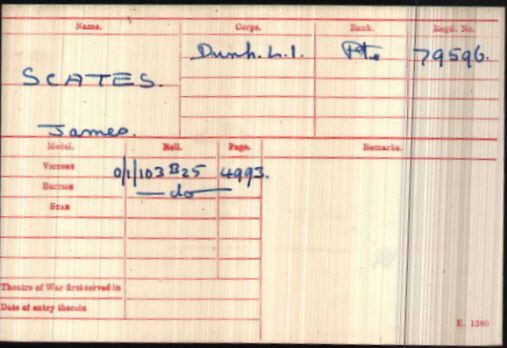 Name. Corps. Rank. Regtl. No.
Durh. L.I. Pte 79596.
SCATES.
James.
Medal. Roll. Page. Remarks.
Victory 0/1/103 B25 4993.
British do
Star
Theatre of War first served in
Date of entry therein
K. 1380